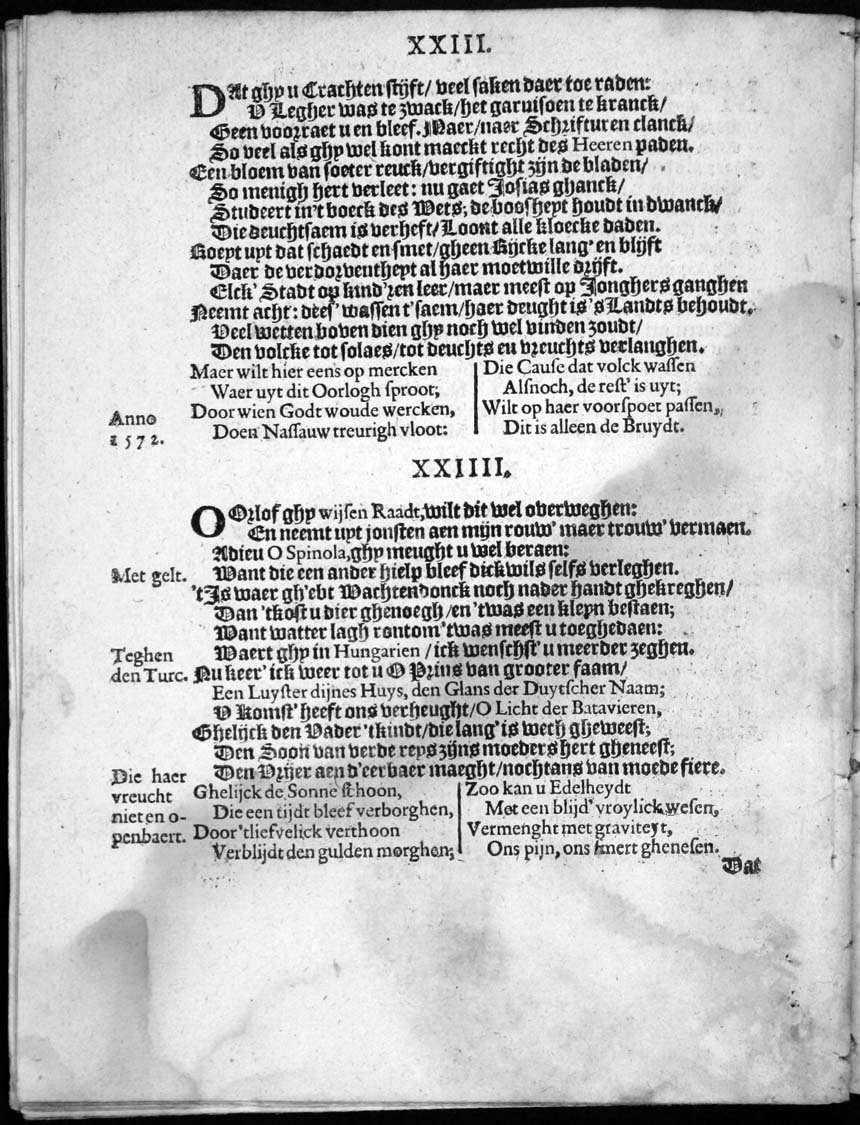 XXIII.
DAt ghy u Crachten stijft/ veel saken daer toe raden:
V Legher was te zwack/het garnisoen te kranck/
Geen voorraet u en bleef. Maer/naer Schrifturen clanck/
So veel als ghy wel kont maeckt recht des Heeren paden.
Een bloem van soeter reuck/vergiftight zijn de bladen/
So menigh hert verleet: nu gaet Josias ghanck/
Studeert in't boeck des Wets; de boosheyt houdt in dwanck/
Die deuchtsaem is verheft/ Loont alle kloecke daden.
Roept uyt dat schaedt en smet/gheen Rijcke lang' en blijft
Daer de verdorventheyt al haer moetwille drijft.
Elck' Stadt op kind'ren leer/maer meest op Jonghers ganghen
Neemt acht: dees' wassen t'saem/haer deught is 's Landts behoudt.
Veel wetten boven dien ghy noch wel vinden zoudt/
Den volcke tot solaes/tot deuchts en vreuchts verlanghen.
Maer wilt hier eens op mercken
Waer uyt dit Oorlogh sproot;
Anno 1572.
Door wien Godt woude wercken,
Doen Nassauw treurigh vloot:
Die Cause dat volck wassen
Alsnoch, de rest' is uyt;
Wilt op haer voorspoet passen,
Dit is alleen de Bruydt.
XXIIII.
OOrlof ghy wijsen Raadt, wilt dit wel overweghen:
En neemt uyt jonsten aen mijn rouw' maer trouw' vermaen.
Adieu O Spinola, ghy meught u wel beraen:
Met gelt.
Want die een ander hielp bleef dickwils selfs verleghen.
't Is waer gh'ebt Wachtendonck noch nader handt ghekreghen/
Dan 'tkost u dier ghenoegh/en 'twas een kleyn bestaen;
Want watter lagh rontom 'twas meest u toeghedaen:
Teghen
den Turc.
Waert ghy in Hungarien/ick wenschst' u meerder zeghen.
Nu keer' ick weer tot u O Prins van grooter faam/
Een Luyster dijnes Huys, den Glans der Duytscher Naam;
V komst' heeft ons verheught/O Licht der Batavieren,
Ghelijck den Vader 'tkindt/die lang' is wech gheweest;
Den Soon van verde reys zijns moeders hert gheneest;
Die haer
vreucht
niet en o-
penbaert.
Den Vrijer aen d'eerbaer maeght/nochtans van moede fiere.
Ghelijck de Sonne schoon,
Die een tijdt bleef verborghen,
Door 'tliefvelick verthoon
Verblijdt den gulden morghen;
Zoo kan u Edelheydt
Met een blijd' vroylick wesen,
Vermenght met graviteyt,
Ons pijn, ons smert ghenesen.
Dat